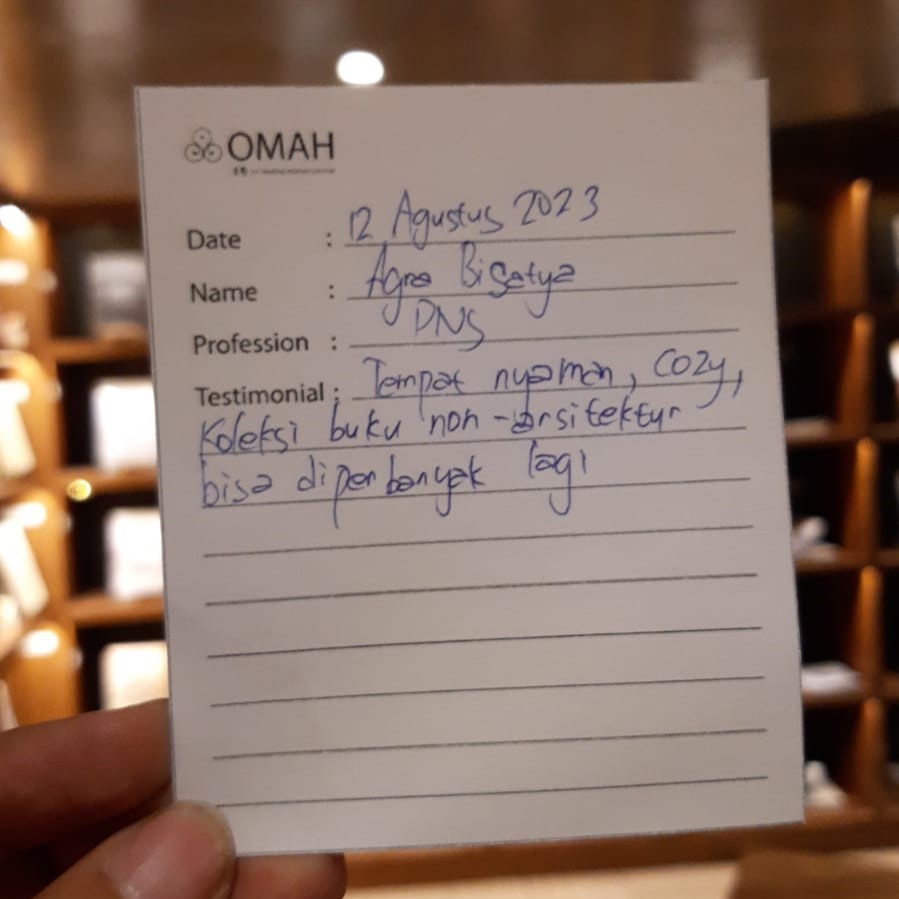 OMAH
Date : 12 Agustus 2023
Name : Agra Bisatya
Profession : PNS
Testimonial : Tempat nyaman, cozy,
Koleksi buku non-arsitektur
bisa diperbanyak lagi